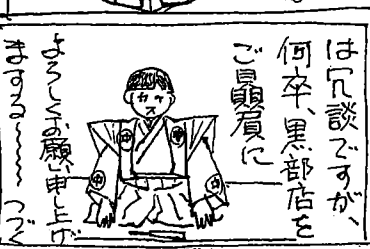 は冗談ですが、
何卒、黒部店を
ご贔屓に
よろしくお願い申し上げ
まする〜〜〜〜 つづく